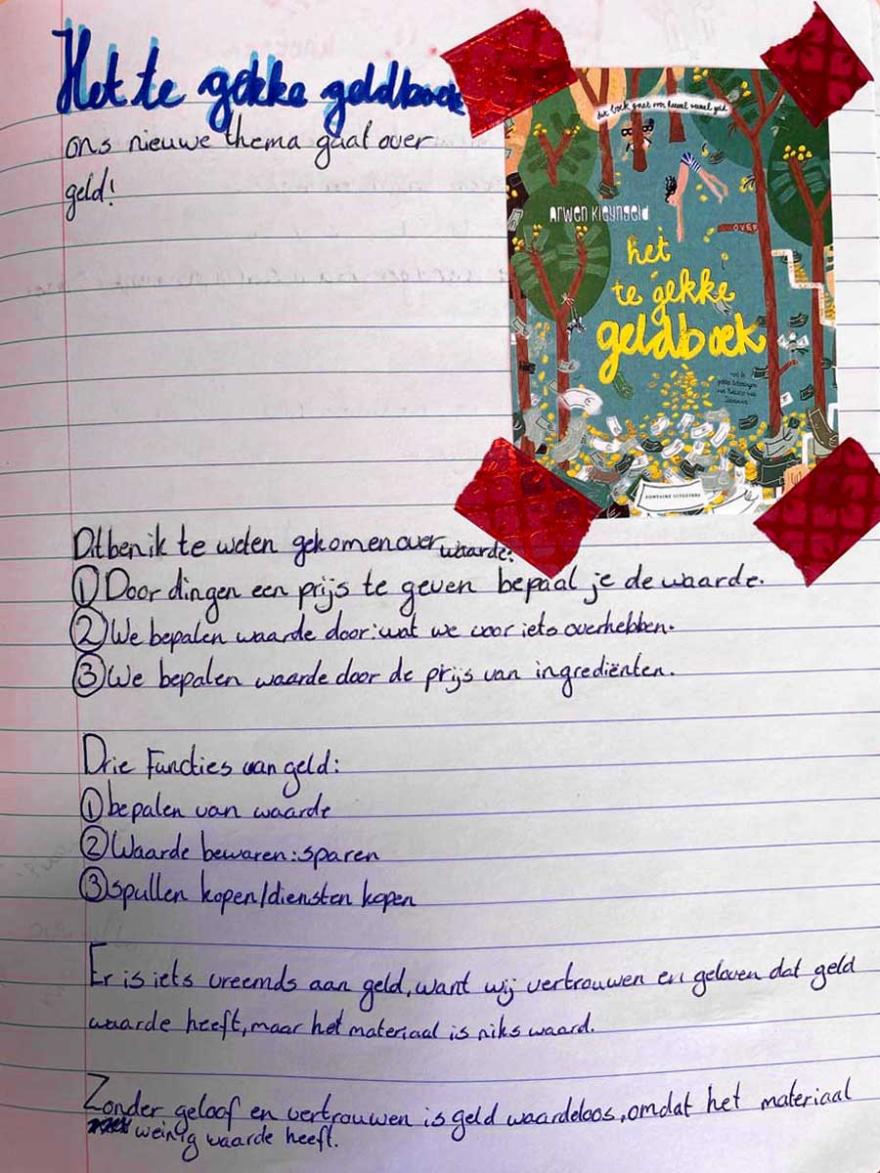 Het te gekke geldboek
ons nieuwe thema gaat over
geld!
dit boek gaat over heel veel geld
Arwen Kleyngeld
OVER
het
te gekke
geldboek
FONTAINE UITGEVERS
Dit ben ik te weten gekomen over waarde:
① Door dingen een prijs te geven bepaal je de waarde.
② We bepalen waarde door: wat we voor iets overhebben.
③ We bepalen waarde door de prijs van ingrediënten.
Drie Functies van geld:
① bepalen van waarde
② Waarde bewaren: sparen
③ spullen kopen/diensten kopen
Er is iets vreemds aan geld, want wij vertrouwen en geloven dat geld
waarde heeft, maar het materiaal is niks waard.
Zonder geloof en vertrouwen is geld waardeloos, omdat het materiaal
weinig waarde heeft.